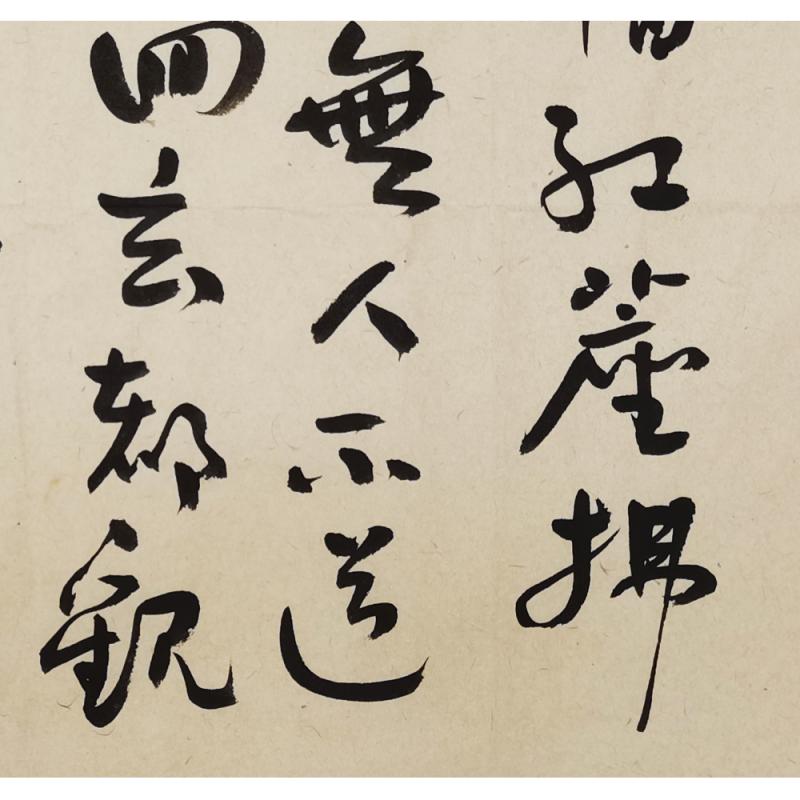 紅塵拂
無人不道
回玄都觀